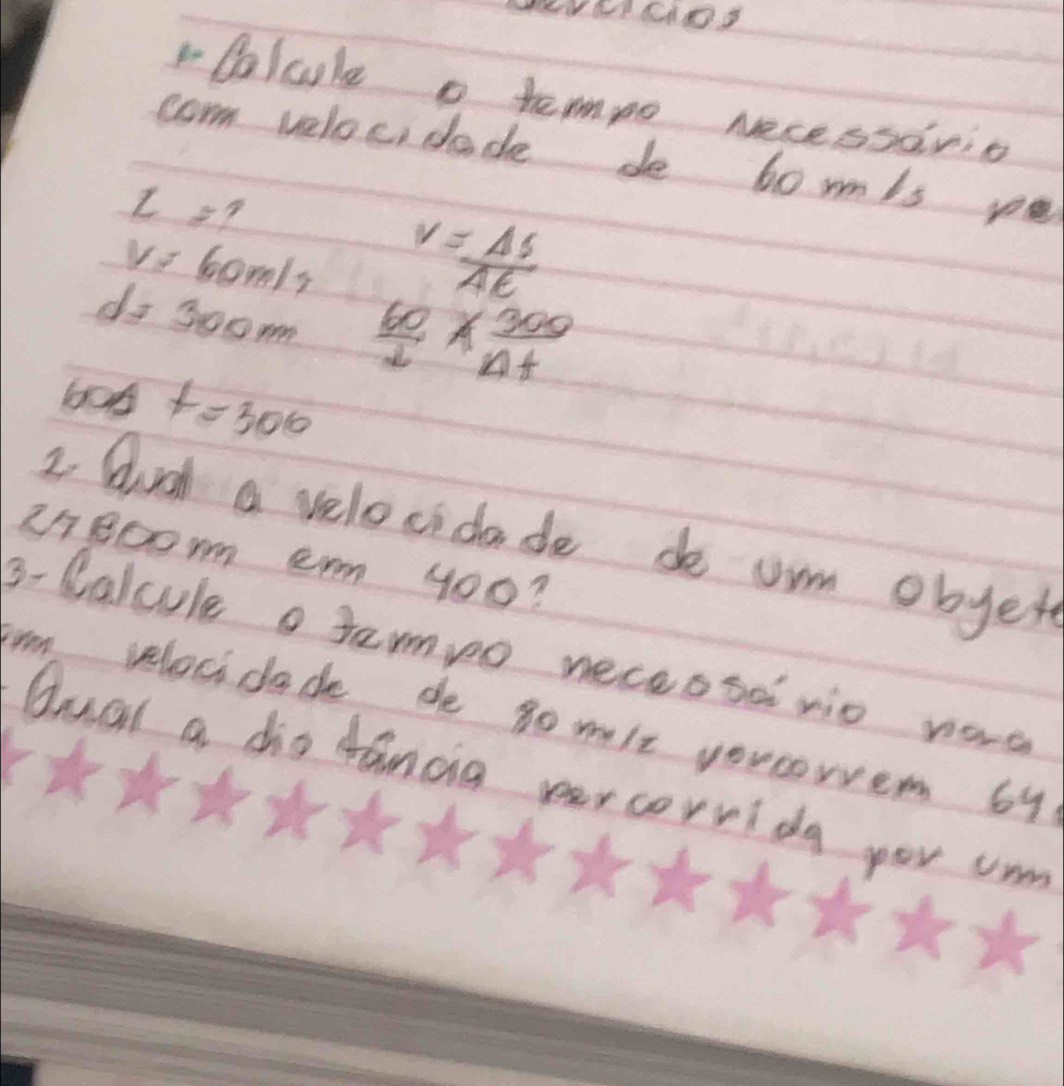 1- Calcule o tempo necessário
com velocidade de 60 m/s
V = ΔS
Δt
V= 60m/s
d= 300m
60 x 300
1 Δt
t=300
2- Qual a velocidade de um obyet
27800m em 400?
3- Calcule o tempo necessário para
velocidade de 80 m/s percorrem 64
Qual a distância percorrida por um